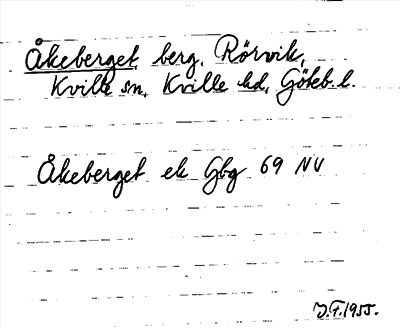 Åkeberget, berg, Rörvik,
Kville sn, Kville hd, Göteb. l.
Åkeberget ek Gbg 69 NV
J.F. 1955.